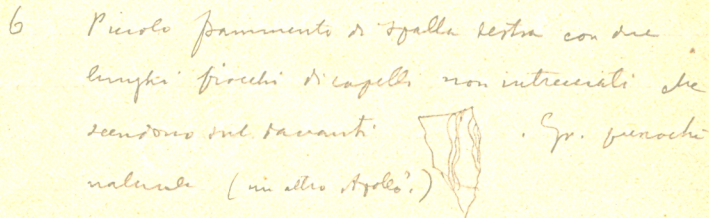 6 Piccolo frammento di spalla destra con due
lunghi fiocchi di capelli non intrecciati che
scendono sul davanti . Gr. pressochè
naturale (un altro Apollo?)